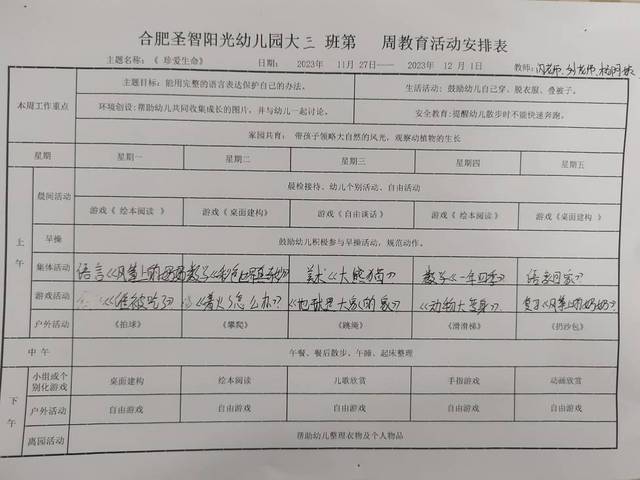 合肥圣智阳光幼儿园大三 班第 周教育活动安排表
主题名称:《 珍爱生命》 日期: 2023年 11月 27日—— 2023年 12月 1日 教师:
本周工作重点 主题目标:能用完整的语言表达保护自己的办法。 生活活动: 鼓励幼儿自己穿、脱衣服、叠被子。
环境创设:帮助幼儿共同收集成长的图片,并与幼儿一起讨论。 安全教育:提醒幼儿散步时不能快速奔跑。
家园共育: 带孩子领略大自然的风光,观察动植物的生长
星期 星期一 星期二 星期三 星期四 星期五
上午 晨间活动 晨检接待、幼儿个别活动、自由活动
游戏《 绘本阅读 》 游戏《桌面建构》 游戏《自由谈话》 游戏《 绘本阅读 》 游戏《桌面建构 》
早操 鼓励幼儿积极参与早操活动,规范动作。
集体活动 语言《风筝上的奶奶 数学 美术《大熊猫》 数学《一年四季》 语言
游戏活动 《谁被吃了》 《着火了怎么办》 《大家的家》 《动物大变身》 《风筝上的奶奶》
户外活动 《拍球》 《攀爬》 《跳绳》 《滑滑梯》 《扔沙包》
中 午 午餐、餐后散步、午睡、起床整理
下午 小组或个别化游戏 桌面建构 绘本阅读 儿歌欣赏 手指游戏 动画欣赏
户外活动 自由游戏 自由游戏 自由游戏 自由游戏 自由游戏
离园活动 帮助幼儿整理衣物及个人物品